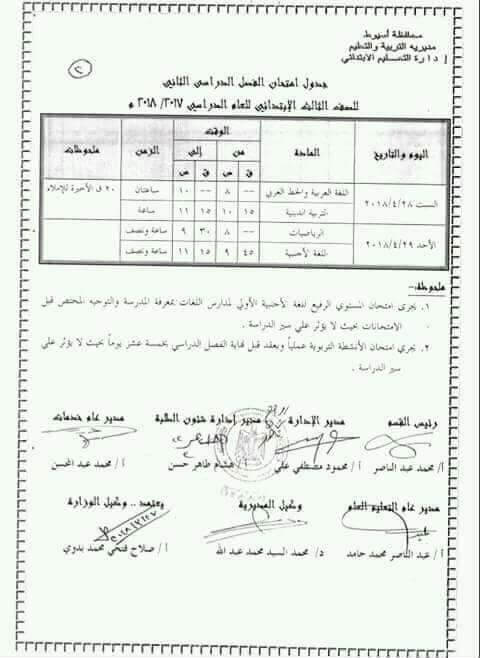 محافظة أسيوط
مديريه التربية والتعليم
إدارة التعليم الابتدائي
٢
جدول امتحان الفصل الدراسي الثاني
للصف الثالث الإبتدائي للعام الدراسي ٢٠١٧/ ٢٠١٨ م
اليوم والتاريخ المادة الوقت الزمن ملحوظات
من إلى
ق س ق س
السبت ٢٠١٨/٤/٢٨ اللغة العربية والخط العربي -- ٨ -- ١٠ ساعتان ٢٠ ق الأخيرة للإملاء
التربية الدينية ١٥ ١٠ ١٥ ١١ ساعة
الأحد ٢٠١٨/٤/٢٩ الرياضيات -- ٨ ٣٠ ٩ ساعة ونصف
اللغة الأجنبية ٤٥ ٩ ١٥ ١١ ساعة ونصف
ملحوظة:-
١. يجرى امتحان المستوي الرفيع للغة الأجنبية الأولي لمدارس اللغات بمعرفة المدرسة والتوجيه المختص قبل
الامتحانات بحيث لا يؤثر علي سير الدراسة .
٢. يجري امتحان الأنشطة التربوية عملياً ويعقد قبل نهاية الفصل الدراسي بخمسة عشر يوماً بحيث لا يؤثر علي
سير الدراسة .
رئيس القسم مدير الإدارة مدير إدارة شئون الطلبة مدير عام خدمات
أ/ محمد عبد الناصر أ/ محمود مصطفي علي أ/ هشام طاهر حسن أ/ محمد عبد المحسن
مدير عام التعليم العام وكيل المديرية يعتمد .. وكيل الوزارة
أ/ عبد الناصر محمد حامد د/ محمد السيد محمد عبد الله أ/ صلاح فتحي محمد بدوي